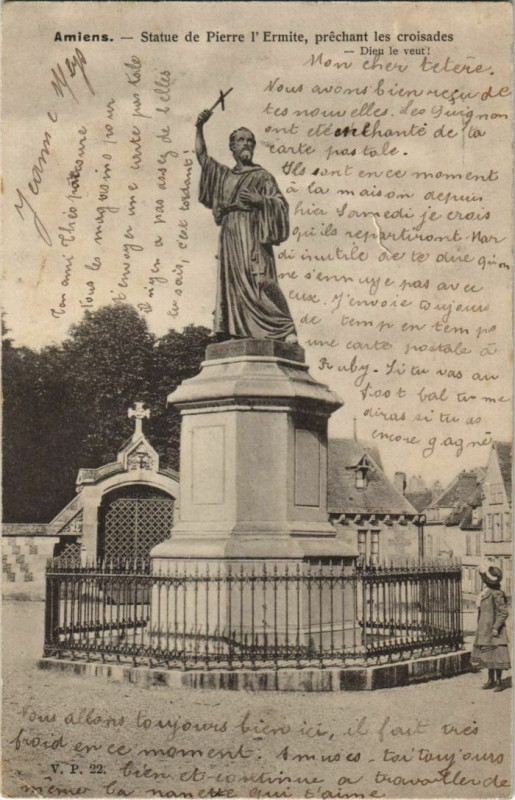 Amiens. — Statue de Pierre l'Ermite, prêchant les croisades
— Dieu le veut!
Mon cher
Nous avons bien reçu de
tes nouvelles. Les Guignon
ont été enchanté de ta
carte postale.
Ils sont en ce moment
à la maison depuis
hier Samedi je crois
qu'ils repartiront Mar
di inutile de te dire qu'on
ne s'ennuye pas avec
eux. J'envoie toujours
de temp en temps
une carte postale à
Ruby. Si tu vas au
Foot bal tu me
diras si tu as
encore gagné
Jeanne
Ton ami Théo parcoure
tous les magasins pour
t'envoyer une carte postale
Il n'y en a pas assez de belles
tu sais, c'est tordant!
Nous allons toujours bien ici, il fait très
froid en ce moment. Amuses-toi toujours
V. P. 22.
bien et continue a travailler de
même ta nanette qui t'aime